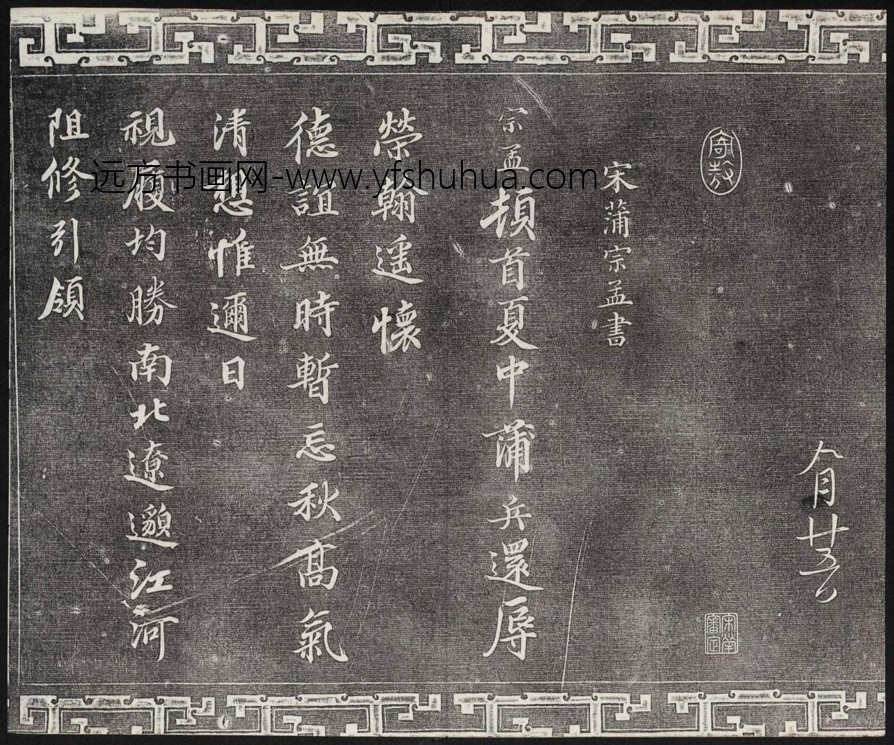 八月廿五日
宋蒲宗孟書
宗孟頓首夏中蒲兵還辱
榮翰遥懷
德誼無時暫忘秋高氣
清想惟邇日
視履均勝南北遼邈江河
阻修引領
远方书画网-www.yfshuhua.com